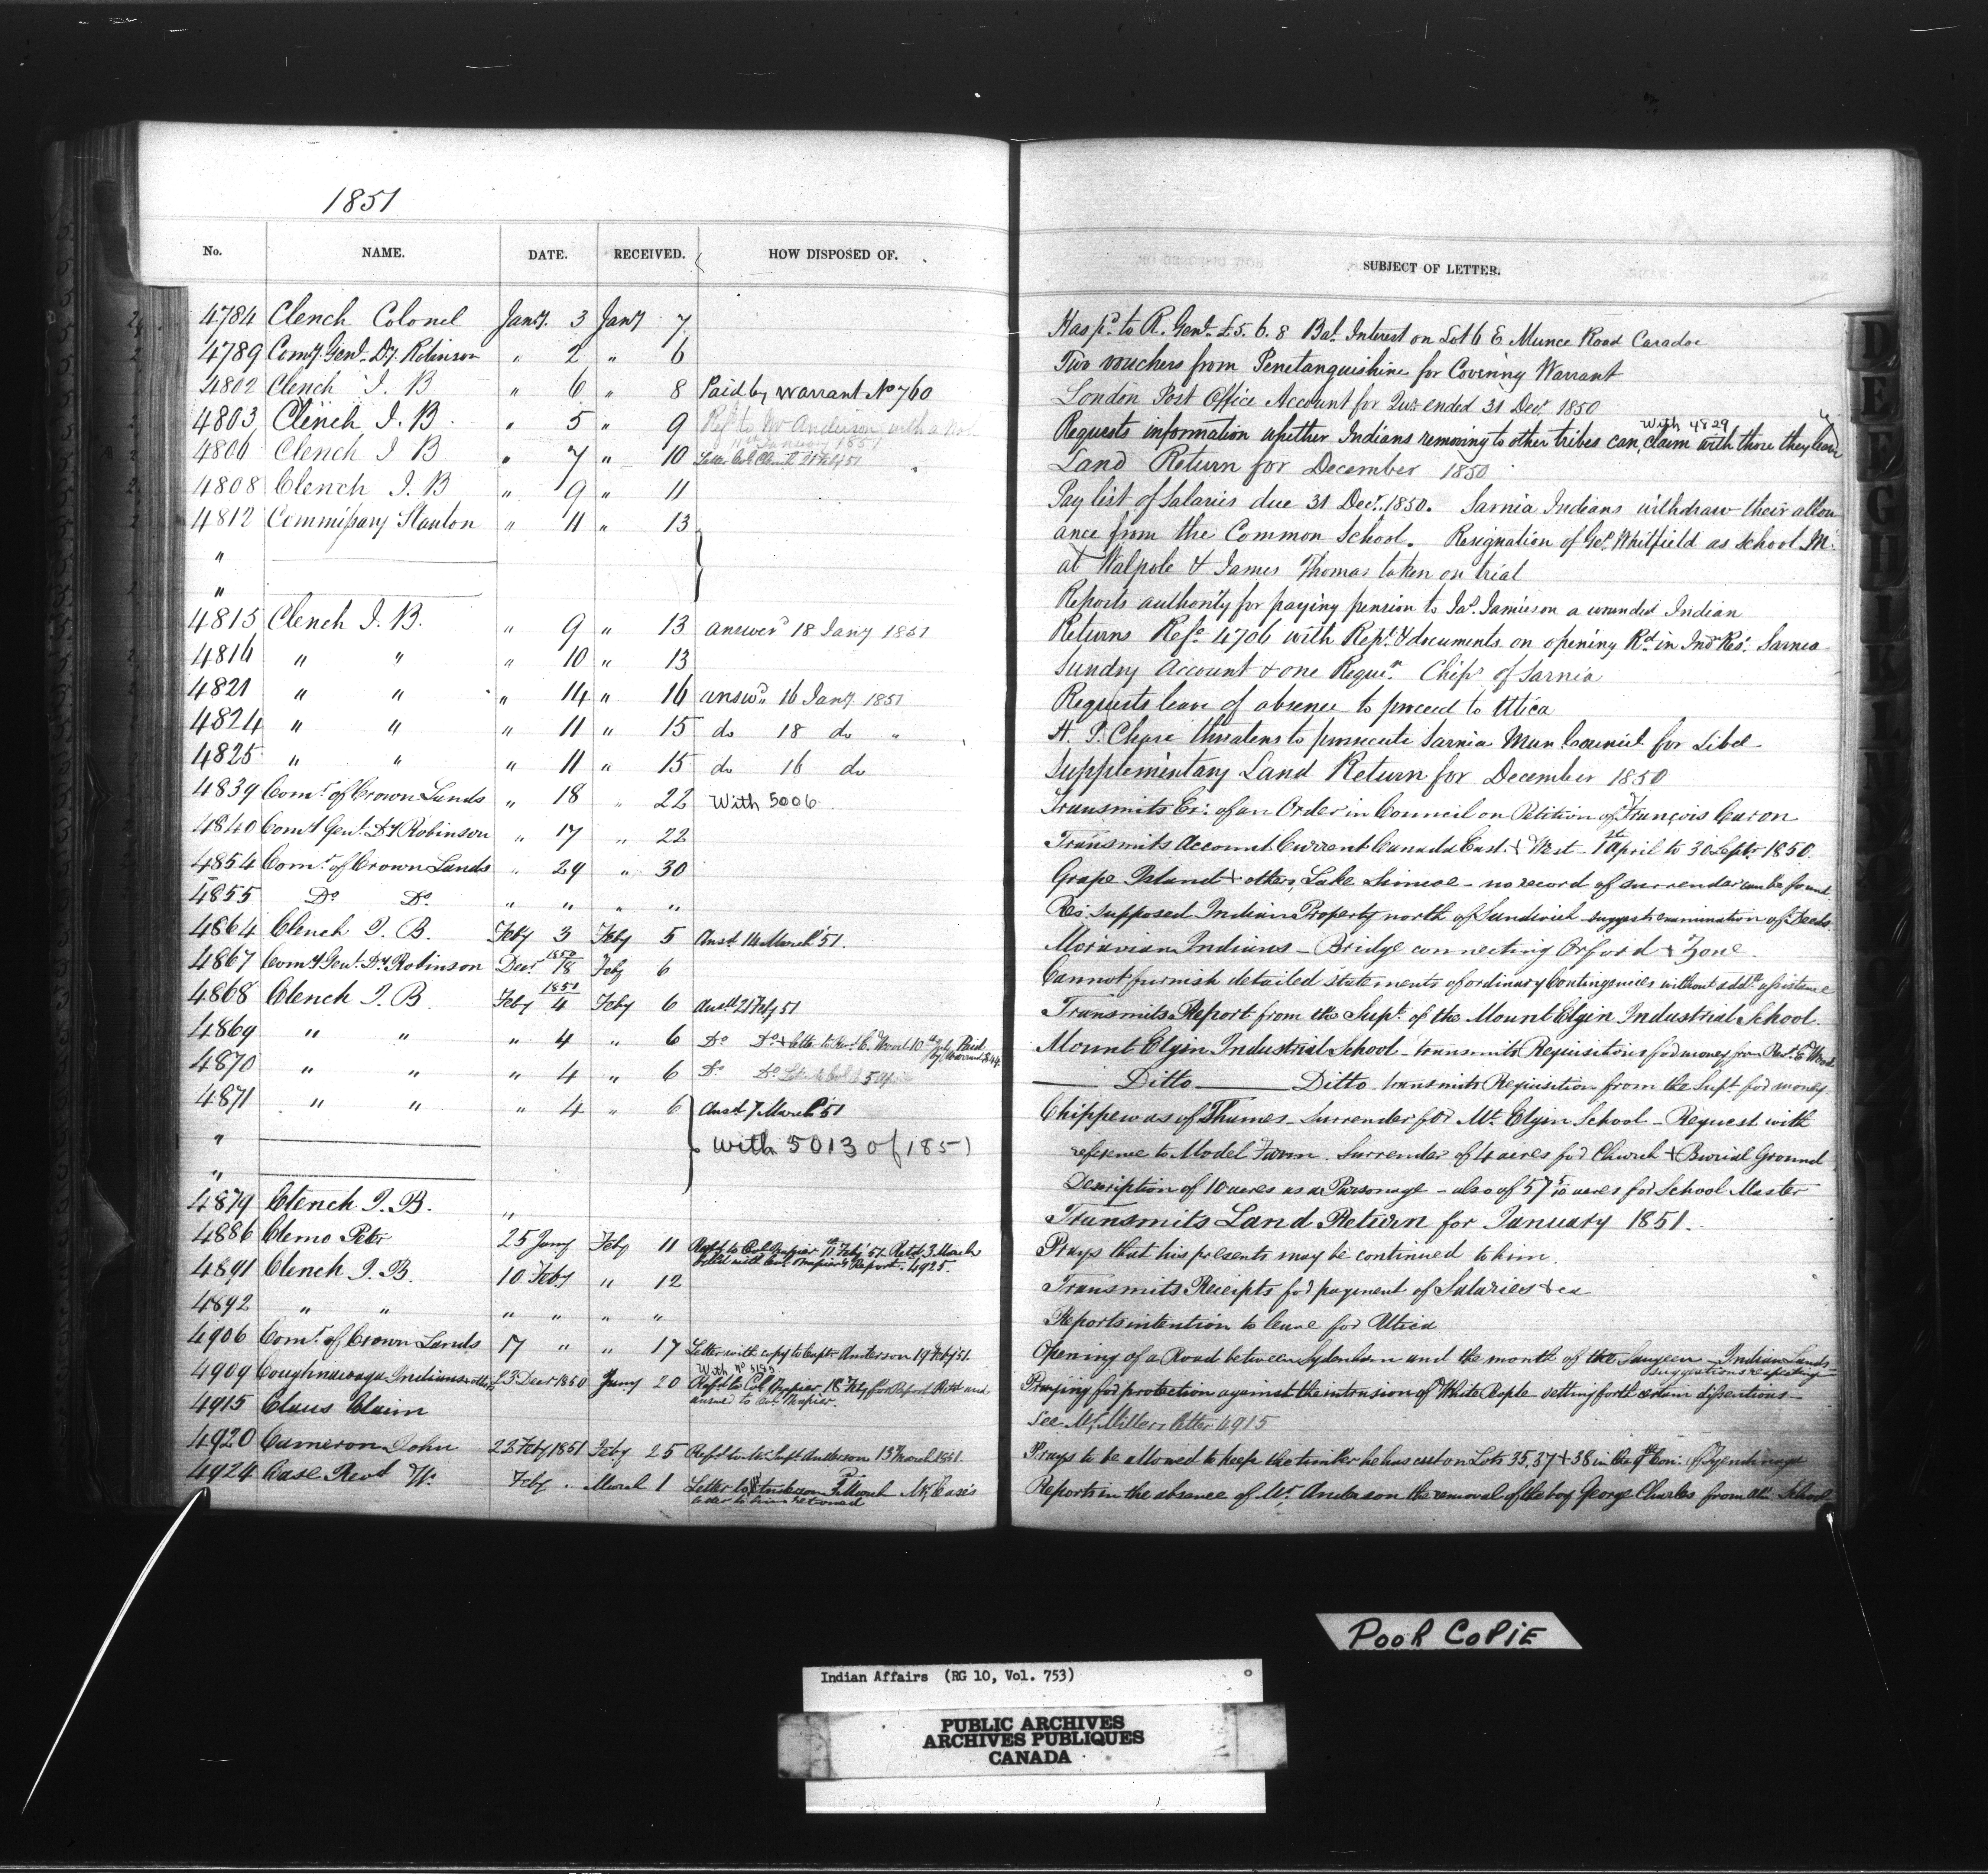 1851
No. NAME. DATE. RECEIVED. HOW DISPOSED OF. SUBJECT OF LETTER.
4784 Clench Colonel Jany. 3 Jany 7 Has pd. to R. Genl. £5. 6. 8 Bal. Interest on Lot 6 E Munce Road Caradoc
4789 Comy. Genl. Dy. Robinson " 2 " 6 Two vouchers from Penetanguishine for Covering Warrant
4802 Clench J. B " 6 " 8 Paid by Warrant No 760 London Post Office Account for Qur ended 31 Decr. 1850
4803 Clench J. B. " 5 " 9 Refd. to Mr Anderson with a
11th January 1851
With 4829
Requests information whether Indians removing to other tribes can claim with those they leave
4806 Clench J B " 7 " 10 Letter Col. Clench 21 Feby 51 Land Return for December 1850
4808 Clench J. B " 9 " 11 Pay list of Salaries due 31 Decr. 1850. Sarnia Indians withdraw their allow
4812 Commissary Stanton " 11 " 13 ance from the Common School. Resignation of Geo. Whitfield as School M.
" at Walpole & James Thomas taken on trial
" Reports authority for paying pension to Jas. Jamieson a wounded Indian
4815 Clench J. B. " 9 " 13 answerd 18 Jany 1851 Returns Refce 4706 with Rept. & documents on opening Rd. in Indn Res. Sarnia
4816 " " " 10 " 13 Sundry Account & one Requn. Chips of Sarnia
4821 " " " 14 " 16 answd. 16 Jany. 1851 Requests leave of absence to proceed to Utica
4824 " " " 11 " 15 do 18 do " H. P. Chase threatens to prosecute Sarnia Mun Council for Libel
4825 " " " 11 " 15 do 16 do Supplementary Land Return for December 1850
4839 Comr. of Crown Lands " 18 " 22 With 5006 Transmits Ex: of an Order in Council on Petition of François Caron
4840 Comy Genl. Dy Robinson " 17 " 22 Transmits Account Current Canada East & West 1st April to 30 Septr 1850.
4854 Comr. of Crown Lands " 29 " 30 Grape Island & others, Lake Simcoe - no record of surrender can be found
4855 Do Do " " " " Res. supposed Indian Property north of Sandwich suggests examination of Deeds
4864 Clench J. B. Feby 3 Feby 5 Ansd 14 March '51. Moravian Indians - Bridge connecting Orford & Zone
4867 Comy Genl. Dy Robinson Decr 1850 18 Feby 6 Cannot furnish detailed statements of ordinary Contingencies without addl. assistance
4868 Clench J. B. Feby 1851 4 Feby 6 Ansd 21 Feby 51 Transmits Report from the Supt. of the Mount Elgin Industrial School.
4869 " " " 4 " 6 Do Do & letter to Revd. C. Wood 10th July Paid by Warrant Mount Elgin Industrial School - transmits Requisitions for money from Revd. Wood
4870 " " " 4 " 6 Do Do 5 April Ditto Ditto transmits Requisition from the Supt. for money
4871 " " " 4 " 6 Ansd 7 March '51 Chippewas of Thames - Surrender for Mt. Elgin School - Request with
" With 5013 of 1851 reference to Model Farm. Surrender of 4 acres for Church & Burial Ground
" Description of 10 acres as a Parsonage - also of 57 5/10 acres for School Master
4879 Clench J. B. " Transmits Land Return for January 1851.
4886 Clemo Peter 25 Jany Feby 11 Refd. to Col. Napier 11th Feby '51 Retd. 3 March
Filed with Col. Napier's Report. 4925.
Prays that his presents may be continued to him.
4891 Clench J. B. 10 Feby " 12 Transmits Receipts for payment of Salaries &ca
4892 " " " " " " Reports intention to leave for Utica
4906 Comr. of Crown Lands 17 " " 17 Letter with copy to Captn Anderson 19 Feby '51. Opening of a Road between Sydenham and the mouth of the Saugeen - Indian Lands
suggestions respecting
4909 Coughnawaga Indians & others 23 Decr 1850 Jany 20 With No 5153
Refd. to Col. Napier 18 Feby for Report Retd. and
answd to Col. Napier.
Praying for protection against the intrusion of White People setting forth certain dissentions
4915 Claus Claim See Mr. Millers letter 4915
4920 Cameron John 22 Feby 1851 Feby 25 Refd. to Mr. Supt Anderson 13 March 1851. Prays to be allowed to keep the timber he has cut on Lots 35, 37 & 38 in the 9th Con: of Tyendinaga
4924 Case Revd W. Feby " March 1 Letter to Anderson March Mr. Case's
letter to being returned
Reports in the absence of Mr. Anderson the removal of the boy George Charles from School
D E F G H I K L
POOR COPIE
Indian Affairs (RG 10, Vol. 753)
PUBLIC ARCHIVES
ARCHIVES PUBLIQUES
CANADA